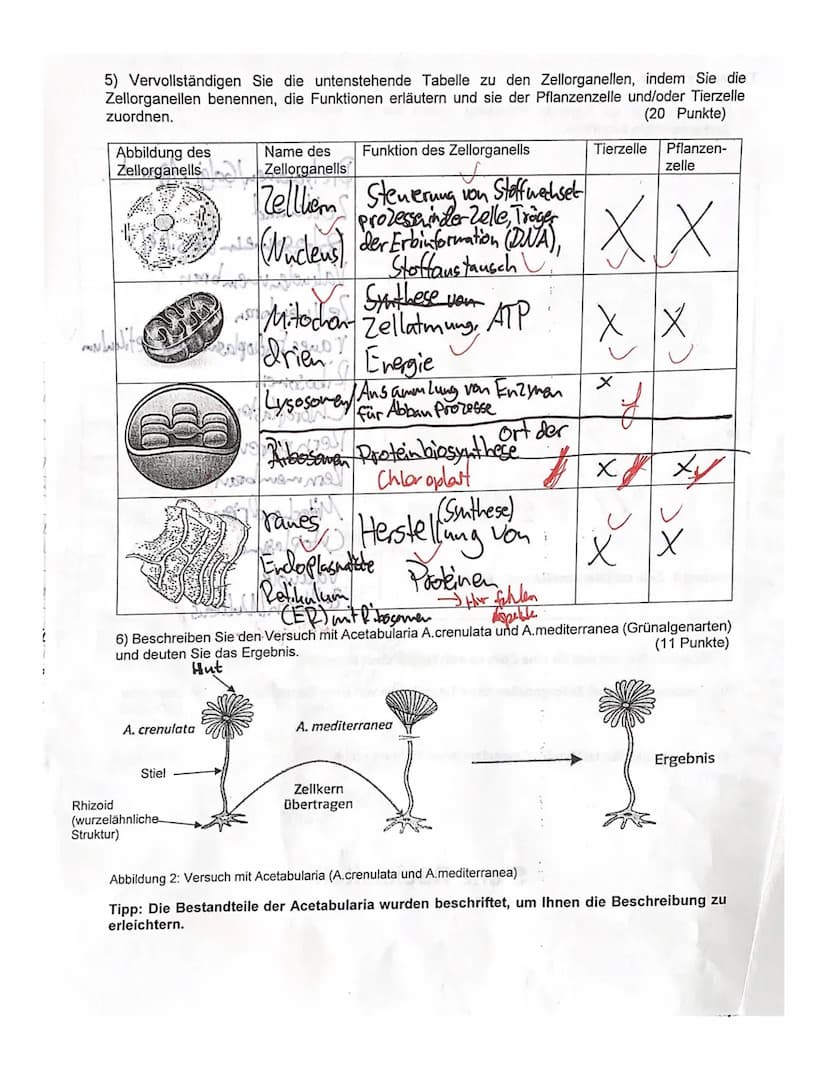 5) Vervollständigen Sie die untenstehende Tabelle zu den Zellorganellen, indem Sie die
Zellorganellen benennen, die Funktionen erläutern und sie der Pflanzenzelle und/oder Tierzelle
zuordnen. (20 Punkte)
Abbildung des Zellorganells Name des Zellorganells Funktion des Zellorganells Tierzelle Pflanzen-
zelle
Zellkern
(Nucleus)
Steuerung von Stoffwechsel-
prozessen in der Zelle, Träger
der Erbinformation (DNA),
Stoffaustausch
X X
Mitochon-
drien
Synthese von
Zellatmung, ATP
Energie
X X
Lysosomen/
Ansammlung von Enzymen
für Abbau Prozesse
x
Ribosomen
Ort der
Proteinbiosynthese
Chloroplast
X X
ranes
Endoplasmatische
Retikulum
(ER) mit Ribosomen
(Synthese)
Herstellung von
Proteinen
→ Hier fehlen
Aspekte
X X
6) Beschreiben Sie den Versuch mit Acetabularia A.crenulata und A.mediterranea (Grünalgenarten)
und deuten Sie das Ergebnis. (11 Punkte)
Hut
A. crenulata
A. mediterranea
Stiel
Zellkern
übertragen
Ergebnis
Rhizoid
(wurzelähnliche
Struktur)
Abbildung 2: Versuch mit Acetabularia (A.crenulata und A.mediterranea)
Tipp: Die Bestandteile der Acetabularia wurden beschriftet, um Ihnen die Beschreibung zu
erleichtern.